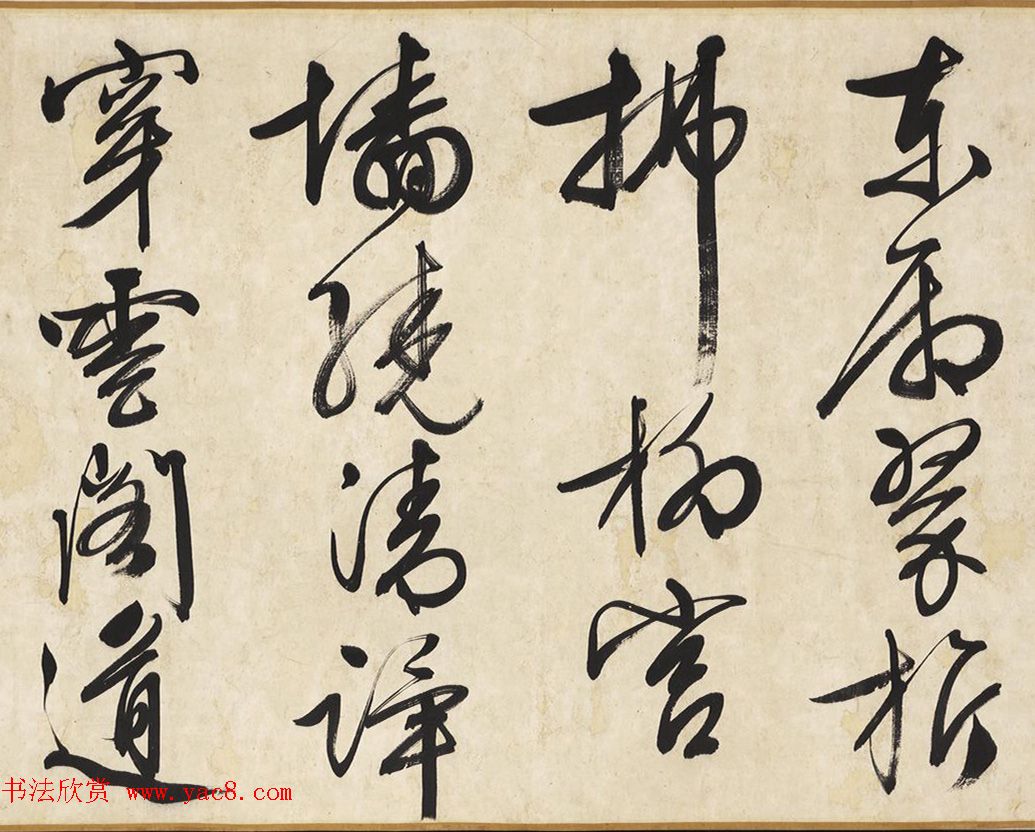 東翠旂
拂柳宮
墻繞清蹕
穿雲閣道
书法欣赏 www.yac8.com